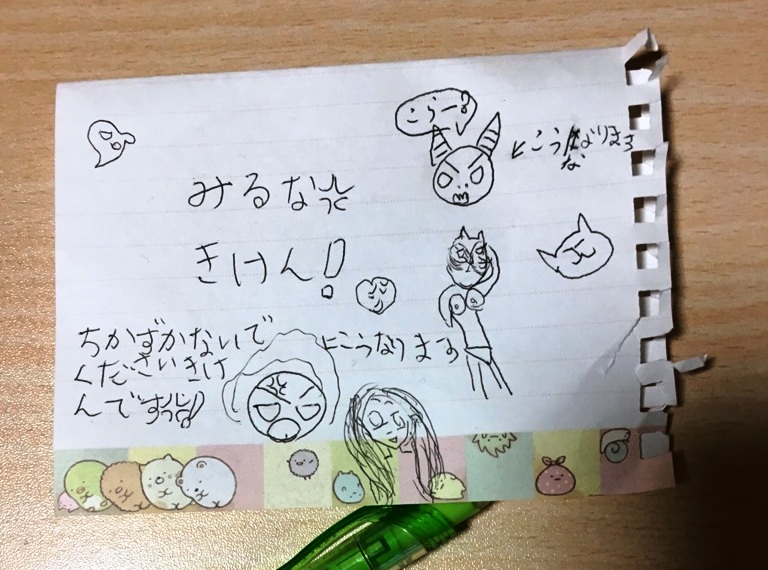 こらー!
←こうなります
な
みるな
きけん!
←こうなります
ちかずかないで
くださいきけ
んです